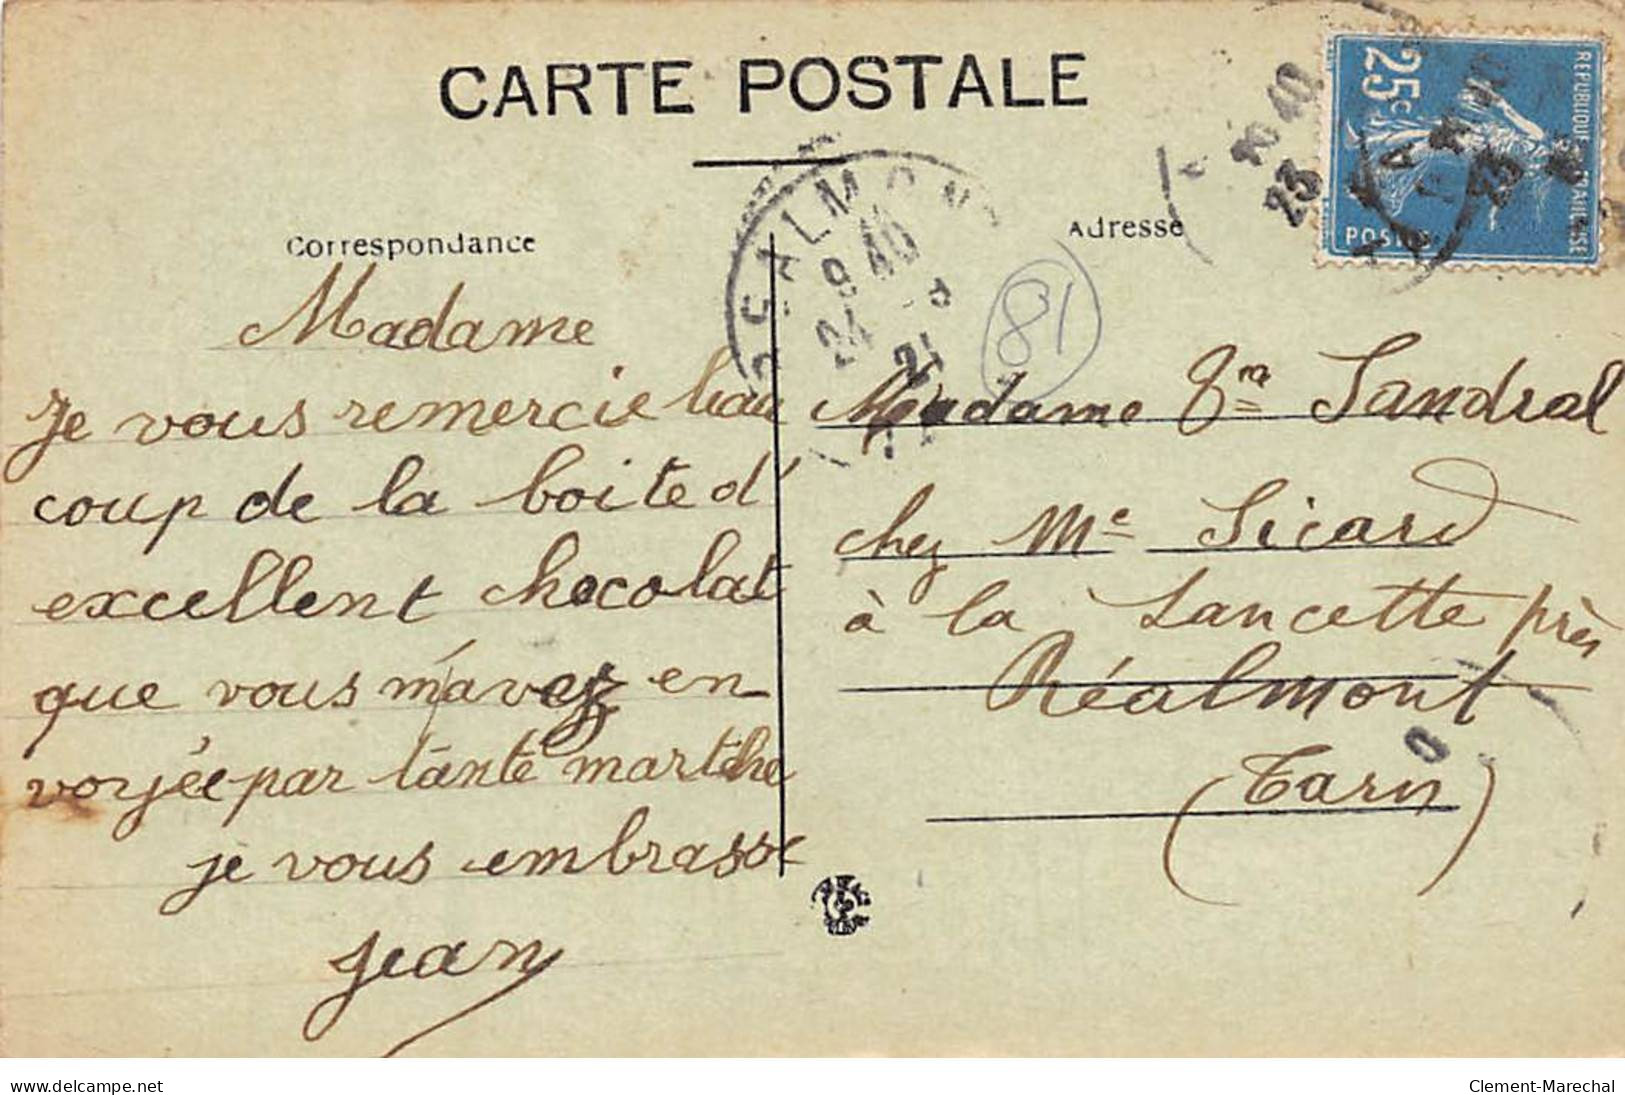 CARTE POSTALE
Correspondance
Madame
Je vous remercie beau
coup de la boite d'
excellent chocolat
que vous m'avez en
voyée par tante marthe
je vous embrasse
Jean
Adresse
25c
REPUBLIQUE FRANÇAISE
POSTES
10 40
23
8 40
24 - 8
21
81
Madame Vve Sandral
chez Me Sicard
à la Lancette près
Réalmont
(Tarn)
www.delcampe.net
Clement-Marechal